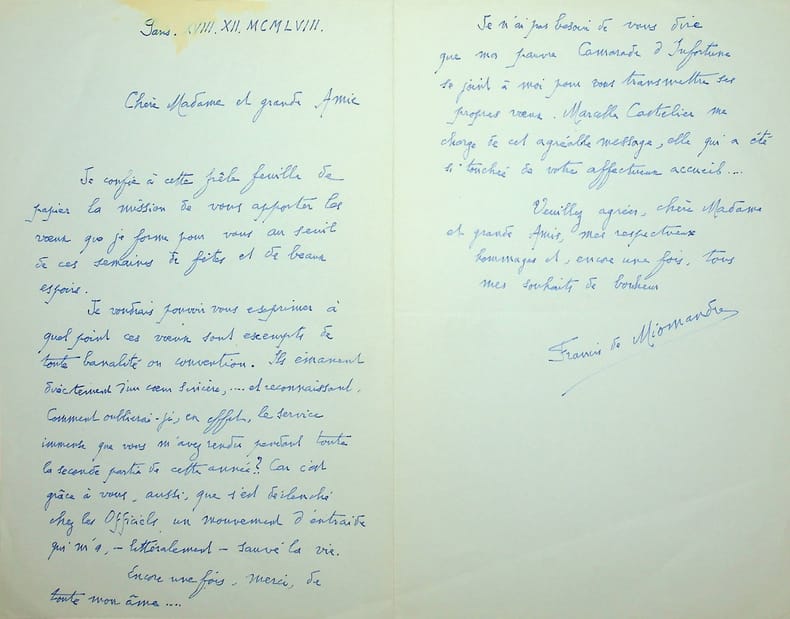 Paris. XVIII. XII. MCMLVIII.
Chère Madame et grande Amie
Je confie à cette frêle feuille de
papier la mission de vous apporter les
vœux que je forme pour vous au seuil
de ces semaines de fêtes et de beaux
espoirs.
Je voudrais pouvoir vous exprimer à
quel point ces vœux sont exempts de
toute banalité ou convention. Ils émanent
directement d'un cœur sincère, .... et reconnaissant.
Comment oublierai-je, en effet, le service
immense que vous m'avez rendu pendant toute
la seconde partie de cette année? Car c'est
grâce à vous, aussi, que s'est déclenché
chez les Officiels, un mouvement d'entraide
qui m'a, - littéralement - sauvé la vie.
Encore une fois, merci, de
toute mon âme ....
Je n'ai pas besoin de vous dire
que ma pauvre Camarade d'Infortune
se joint à moi pour vous transmettre ses
propres vœux. Marcelle Castelier me
charge de cet agréable message, elle qui a été
si touchée de votre affectueux accueil....
Veuillez agréer, chère Madame
et grande Amie, mes respectueux
hommages et, encore une fois, tous
mes souhaits de bonheur
Francis de Miomandre